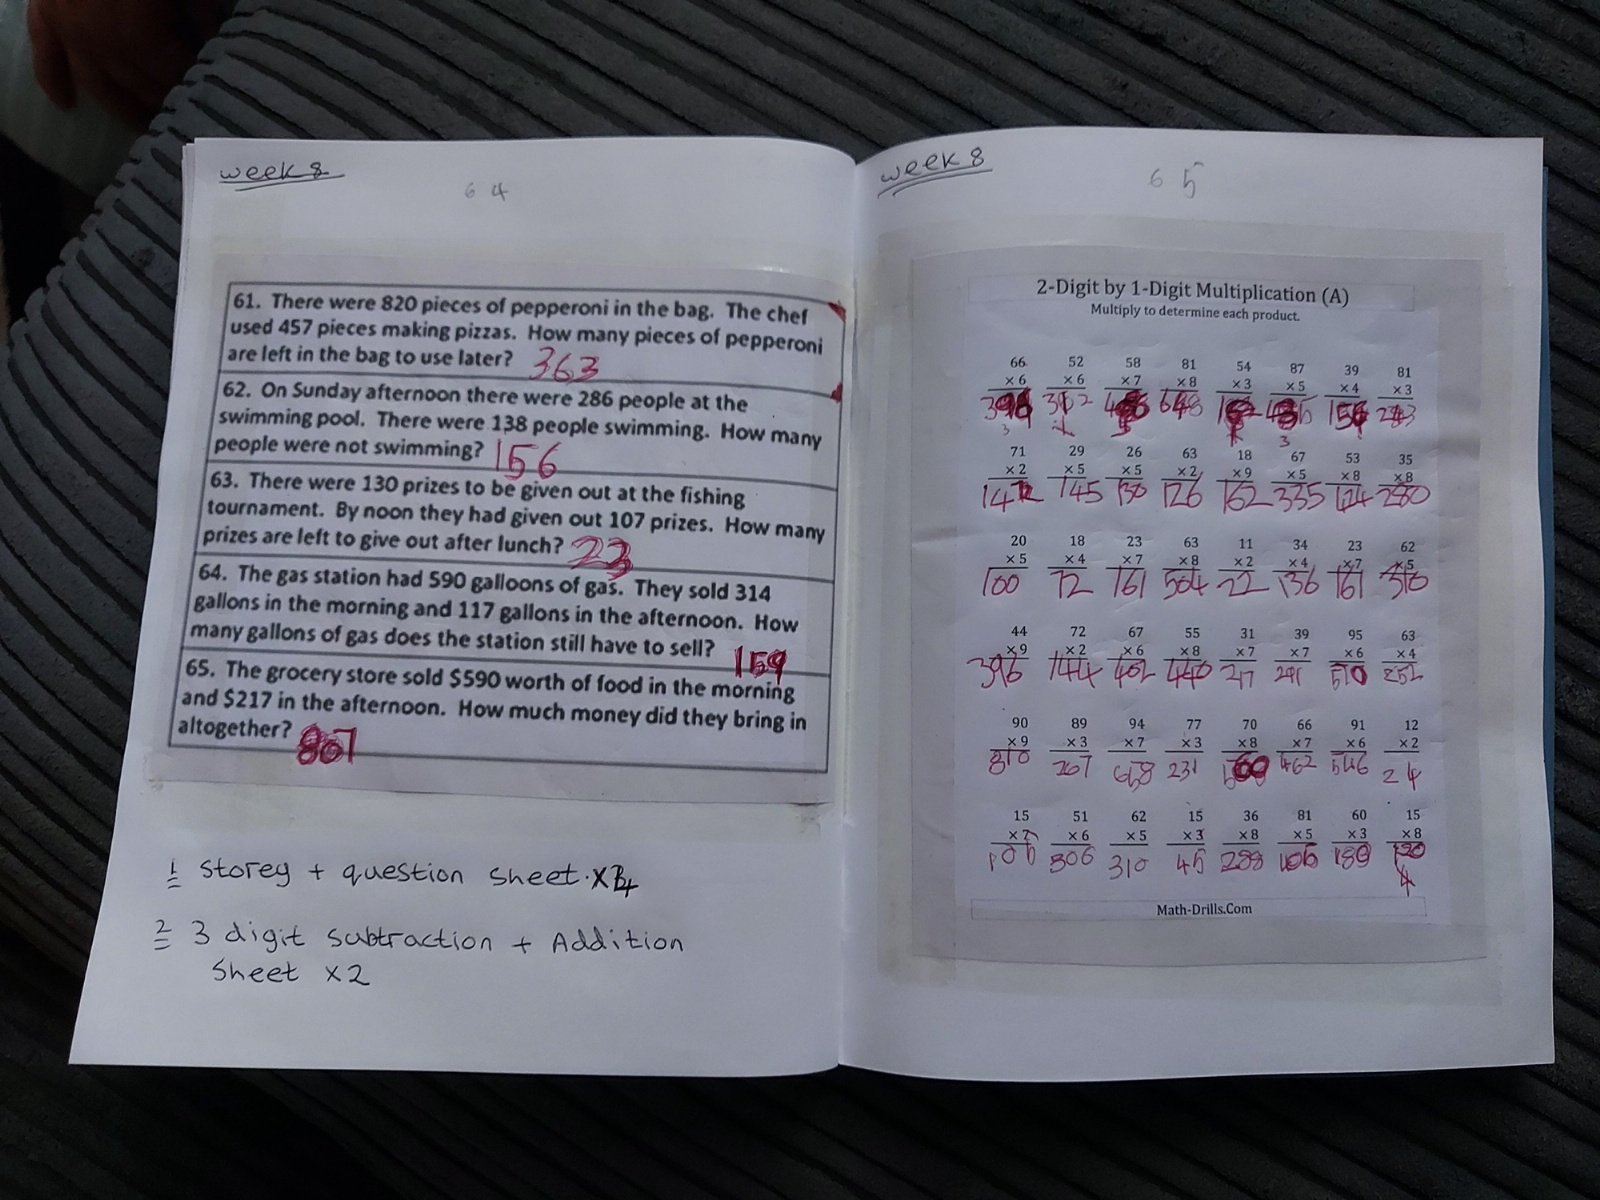 week 8
64
61. There were 820 pieces of pepperoni in the bag. The chef
used 457 pieces making pizzas. How many pieces of pepperoni
are left in the bag to use later? 363
62. On Sunday afternoon there were 286 people at the
swimming pool. There were 138 people swimming. How many
people were not swimming? 156
63. There were 130 prizes to be given out at the fishing
tournament. By noon they had given out 107 prizes. How many
prizes are left to give out after lunch? 23
64. The gas station had 590 galloons of gas. They sold 314
gallons in the morning and 117 gallons in the afternoon. How
many gallons of gas does the station still have to sell? 159
65. The grocery store sold $590 worth of food in the morning
and $217 in the afternoon. How much money did they bring in
altogether? 807
1 storey + question sheet
2 3 digit subtraction + Addition
Sheet x2
week 8
65
2-Digit by 1-Digit Multiplication (A)
Multiply to determine each product.
66 52 58 81 54 87 39 81
× 6 × 6 × 7 × 8 × 3 × 5 × 4 × 3
648 243
71 29 26 63 18 67 53 35
× 2 × 5 × 5 × 2 × 9 × 5 × 8 × 8
145 130 126 162 335 280
20 18 23 63 11 34 23 62
× 5 × 4 × 7 × 8 × 2 × 4 × 7 × 5
100 72 161 504 22 136 161 310
44 72 67 55 31 39 95 63
× 9 × 2 × 6 × 8 × 7 × 7 × 6 × 4
396 144 402 440 217 252
90 89 94 77 70 66 91 12
× 9 × 3 × 7 × 3 × 8 × 7 × 6 × 2
810 267 658 231 560 462 546 24
15 51 62 15 36 81 60 15
× 7 × 6 × 5 × 3 × 8 × 5 × 3 × 8
306 310 45 288 180
Math-Drills.Com